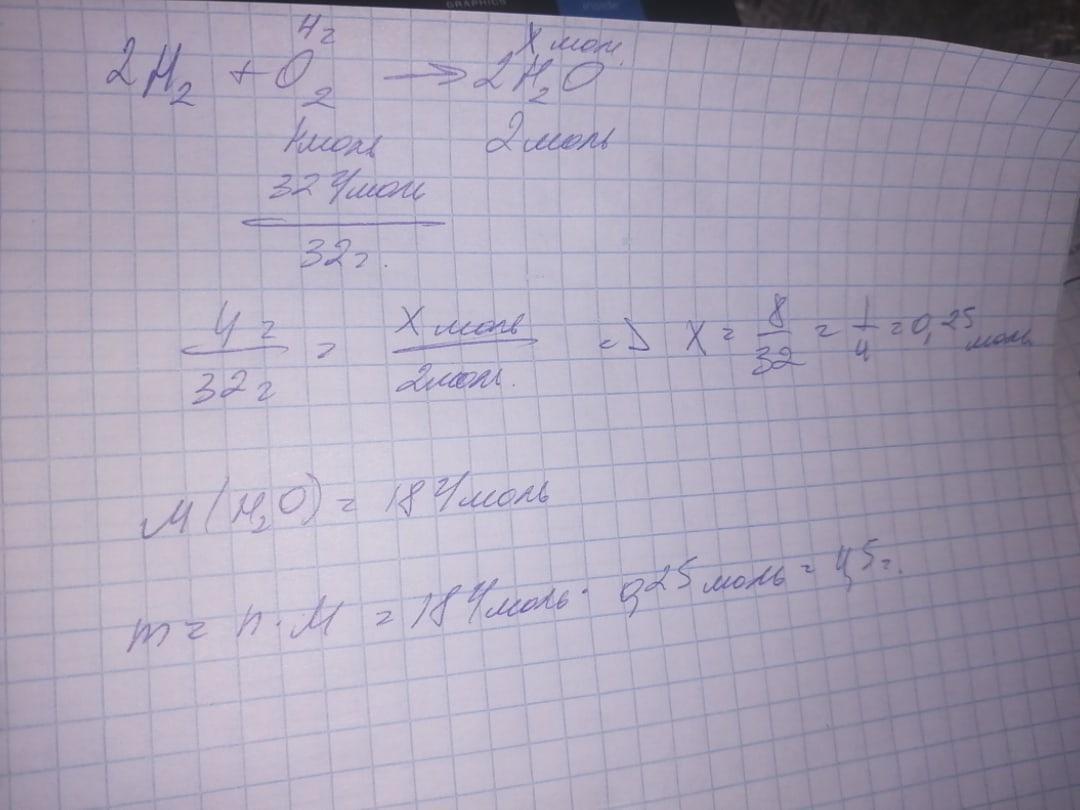 GRAPHICS
inside
4г X моль
2H₂ + O₂ → 2H₂O
1 моль 2 моль
32 г/моль
32 г.
4 г / 32 г = X моль / 2 моль. => X = 8/32 = 1/4 = 0,25 моль
M(H₂O) = 18 г/моль
m = n · M = 18 г/моль · 0,25 моль = 4,5 г.